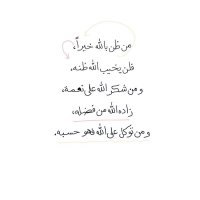 من ظن بالله خيراً،
فلن يخيب الله ظنه.
ومن شكر الله على نعمة،
زاده الله من فضله،
ومن توكل على الله فهو حسبه.